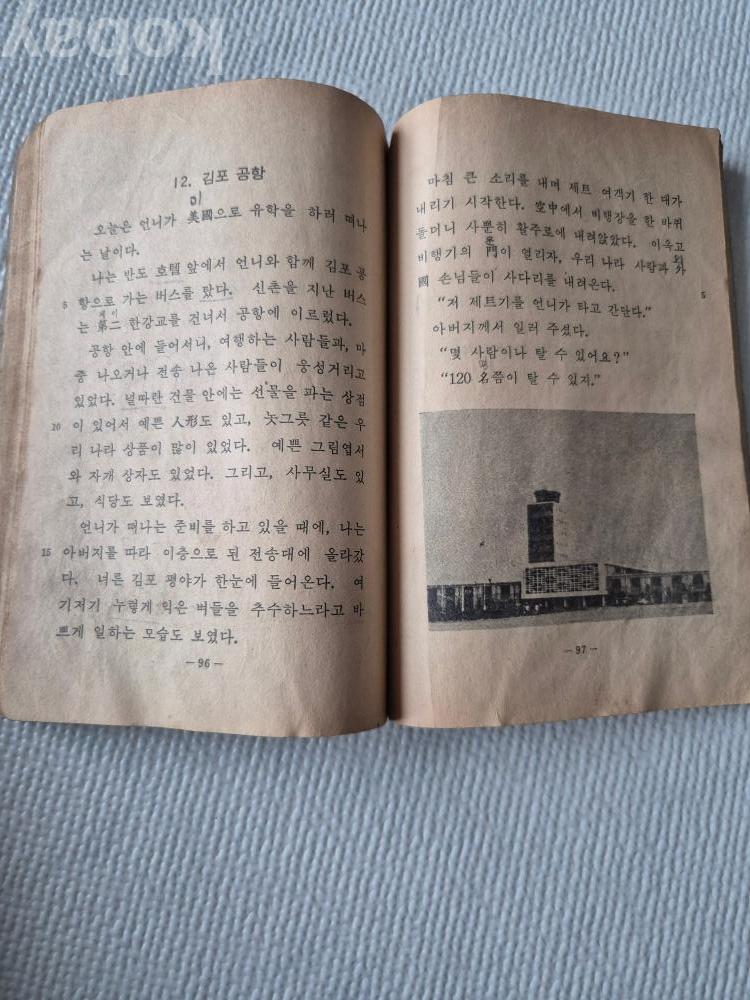 kobay
12. 김포 공항
미
오늘은 언니가 美國으로 유학을 하러 떠나
는 날이다.
나는 반도 호텔 앞에서 언니와 함께 김포 공
5 항으로 가는 버스를 탔다. 신촌을 지난 버스
제이
는 第二 한강교를 건너서 공항에 이르렀다.
공항 안에 들어서니, 여행하는 사람들과, 마
중 나오거나 전송 나온 사람들이 웅성거리고
있었다. 널따란 건물 안에는 선물을 파는 상점
10 이 있어서 예쁜 人形도 있고, 놋그릇 같은 우
리 나라 상품이 많이 있었다. 예쁜 그림엽서
와 자개 상자도 있었다. 그리고, 사무실도 있
고, 식당도 보였다.
언니가 떠나는 준비를 하고 있을 때에, 나는
15 아버지를 따라 이층으로 된 전송대에 올라갔
다. 너른 김포 평야가 한눈에 들어온다. 여
기저기 누렇게 익은 벼들을 추수하느라고 바
쁘게 일하는 모습도 보였다.
— 96 —
마침 큰 소리를 내며 제트 여객기 한 대가
내리기 시작한다. 空中에서 비행장을 한 바퀴
돌더니 사뿐히 활주로에 내려앉았다. 이윽고
문 외
비행기의 門이 열리자, 우리 나라 사람과 外
國 손님들이 사다리를 내려온다.
5
“저 제트기를 언니가 타고 간단다.”
아버지께서 일러 주셨다.
“몇 사람이나 탈 수 있어요?”
명
“120 名쯤이 탈 수 있지.”
— 97 —